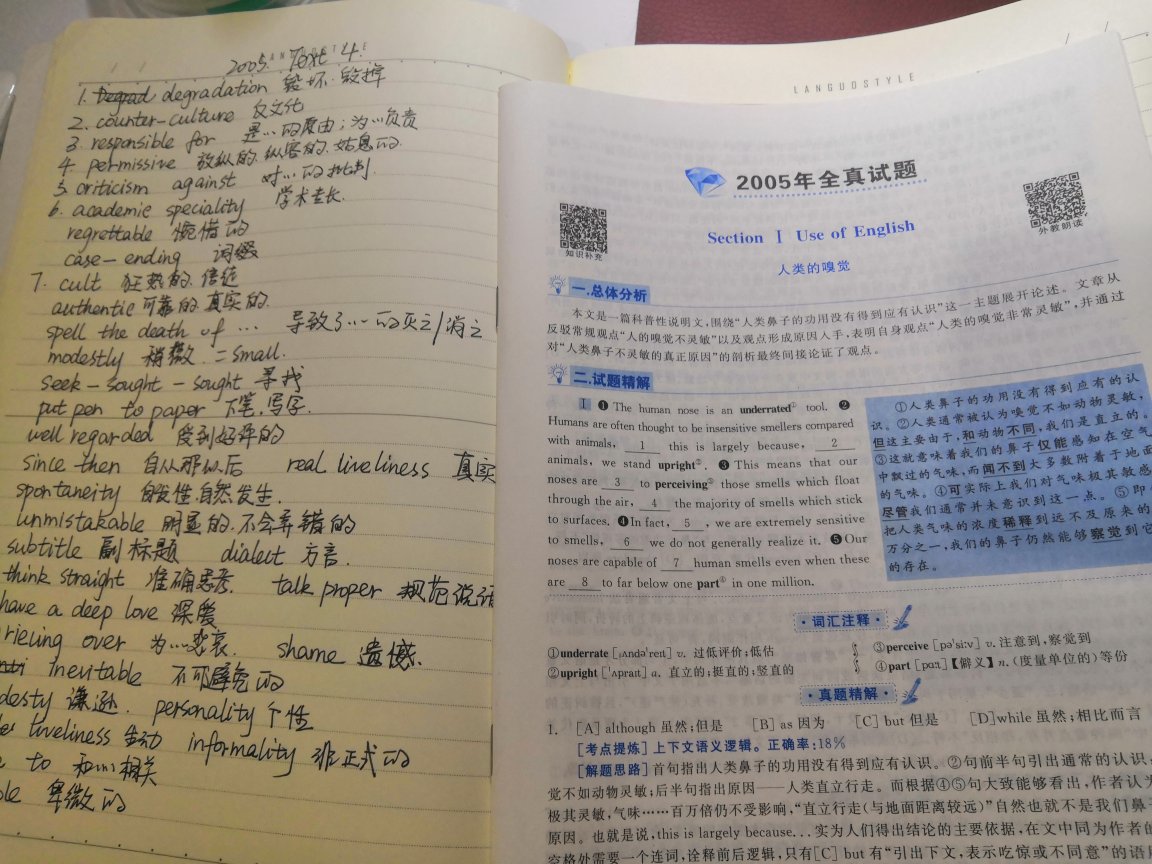 LANGUOSTYLE
2005. Text 4.
1. degradation 毁坏.毁掉
2. counter-culture 反文化
3. responsible for 是…的原由；为…负责
4. permissive 放纵的.纵容的.姑息的
5 criticism against 对…的批判.
6. academic speciality 学术专长.
regrettable 惋惜的
case-ending 词缀
7. cult 狂热的.信徒
authentic 可靠的.真实的.
spell the death of … 导致了…的灭亡/消亡
modestly 稍微. = small.
seek-sought-sought 寻找
put pen to paper 下笔.写字.
well regarded 受到好评的
since then 自从那以后 real liveliness 真实
spontaneity 自发性.自然发生.
unmistakable 明显的.不会弄错的
subtitle 副标题 dialect 方言.
think straight 准确思考. talk proper 规范说话
have a deep love 深爱
rieving over 为…悲哀. shame 遗憾.
inevitable 不可避免的
desty 谦逊. personality 个性
liveliness 生动 informality 非正式的
to 和…相关
ble 卑微的
LANGUOSTYLE
2005年全真试题
知识补充
外教朗读
Section Ⅰ Use of English
人类的嗅觉
一.总体分析
本文是一篇科普性说明文,围绕“人类鼻子的功用没有得到应有认识”这一主题展开论述。文章从
反驳常规观点“人的嗅觉不灵敏”以及观点形成原因入手,表明自身观点“人类的嗅觉非常灵敏”,并通过
对“人类鼻子不灵敏的真正原因”的剖析最终间接论证了观点。
二.试题精解
Ⅰ ❶ The human nose is an underrated① tool. ❷
Humans are often thought to be insensitive smellers compared
with animals, 1 this is largely because, 2
animals, we stand upright②. ❸ This means that our
noses are 3 to perceiving③ those smells which float
through the air, 4 the majority of smells which stick
to surfaces. ❹ In fact, 5 , we are extremely sensitive
to smells, 6 we do not generally realize it. ❺ Our
noses are capable of 7 human smells even when these
are 8 to far below one part④ in one million.
①人类鼻子的功用没有得到应有的认
识。②人类通常被认为嗅觉不如动物灵敏,
但这主要由于,和动物不同,我们是直立的。
③这就意味着我们的鼻子仅能感知在空气
中飘过的气味,而闻不到大多数附着于地面
的气味。④可实际上我们对气味极其敏感,
尽管我们通常并未意识到这一点。⑤即
把人类气味的浓度稀释到远不及原来的
万分之一,我们的鼻子仍然能够察觉到它
的存在。
词汇注释
①underrate [ˌʌndəˈreɪt] v. 过低评价;低估
③perceive [pəˈsiːv] v. 注意到,察觉到
②upright [ˈʌpraɪt] a. 直立的;挺直的;竖直的
④part [pɑːt]【僻义】n.(度量单位的)等份
真题精解
1. [A] although 虽然;但是 [B] as 因为 [C] but 但是 [D]while 虽然;相比而言
[考点提炼] 上下文语义逻辑。正确率:18%
[解题思路] 首句指出人类鼻子的功用没有得到应有认识。②句前半句引出通常的认识,
觉不如动物灵敏;后半句指出原因——人类直立行走。而根据④⑤句大致能够看出,作者认为
极其灵敏,气味……百万倍仍不受影响,“直立行走(与地面距离较远)”自然也就不是我们鼻
原因。也就是说,this is largely because... 实为人们得出结论的主要依据,在文中同为作者的
空格处需要一个连词,诠释前后逻辑,只有[C] but 有“引出下文,表示吃惊或不同意”的语